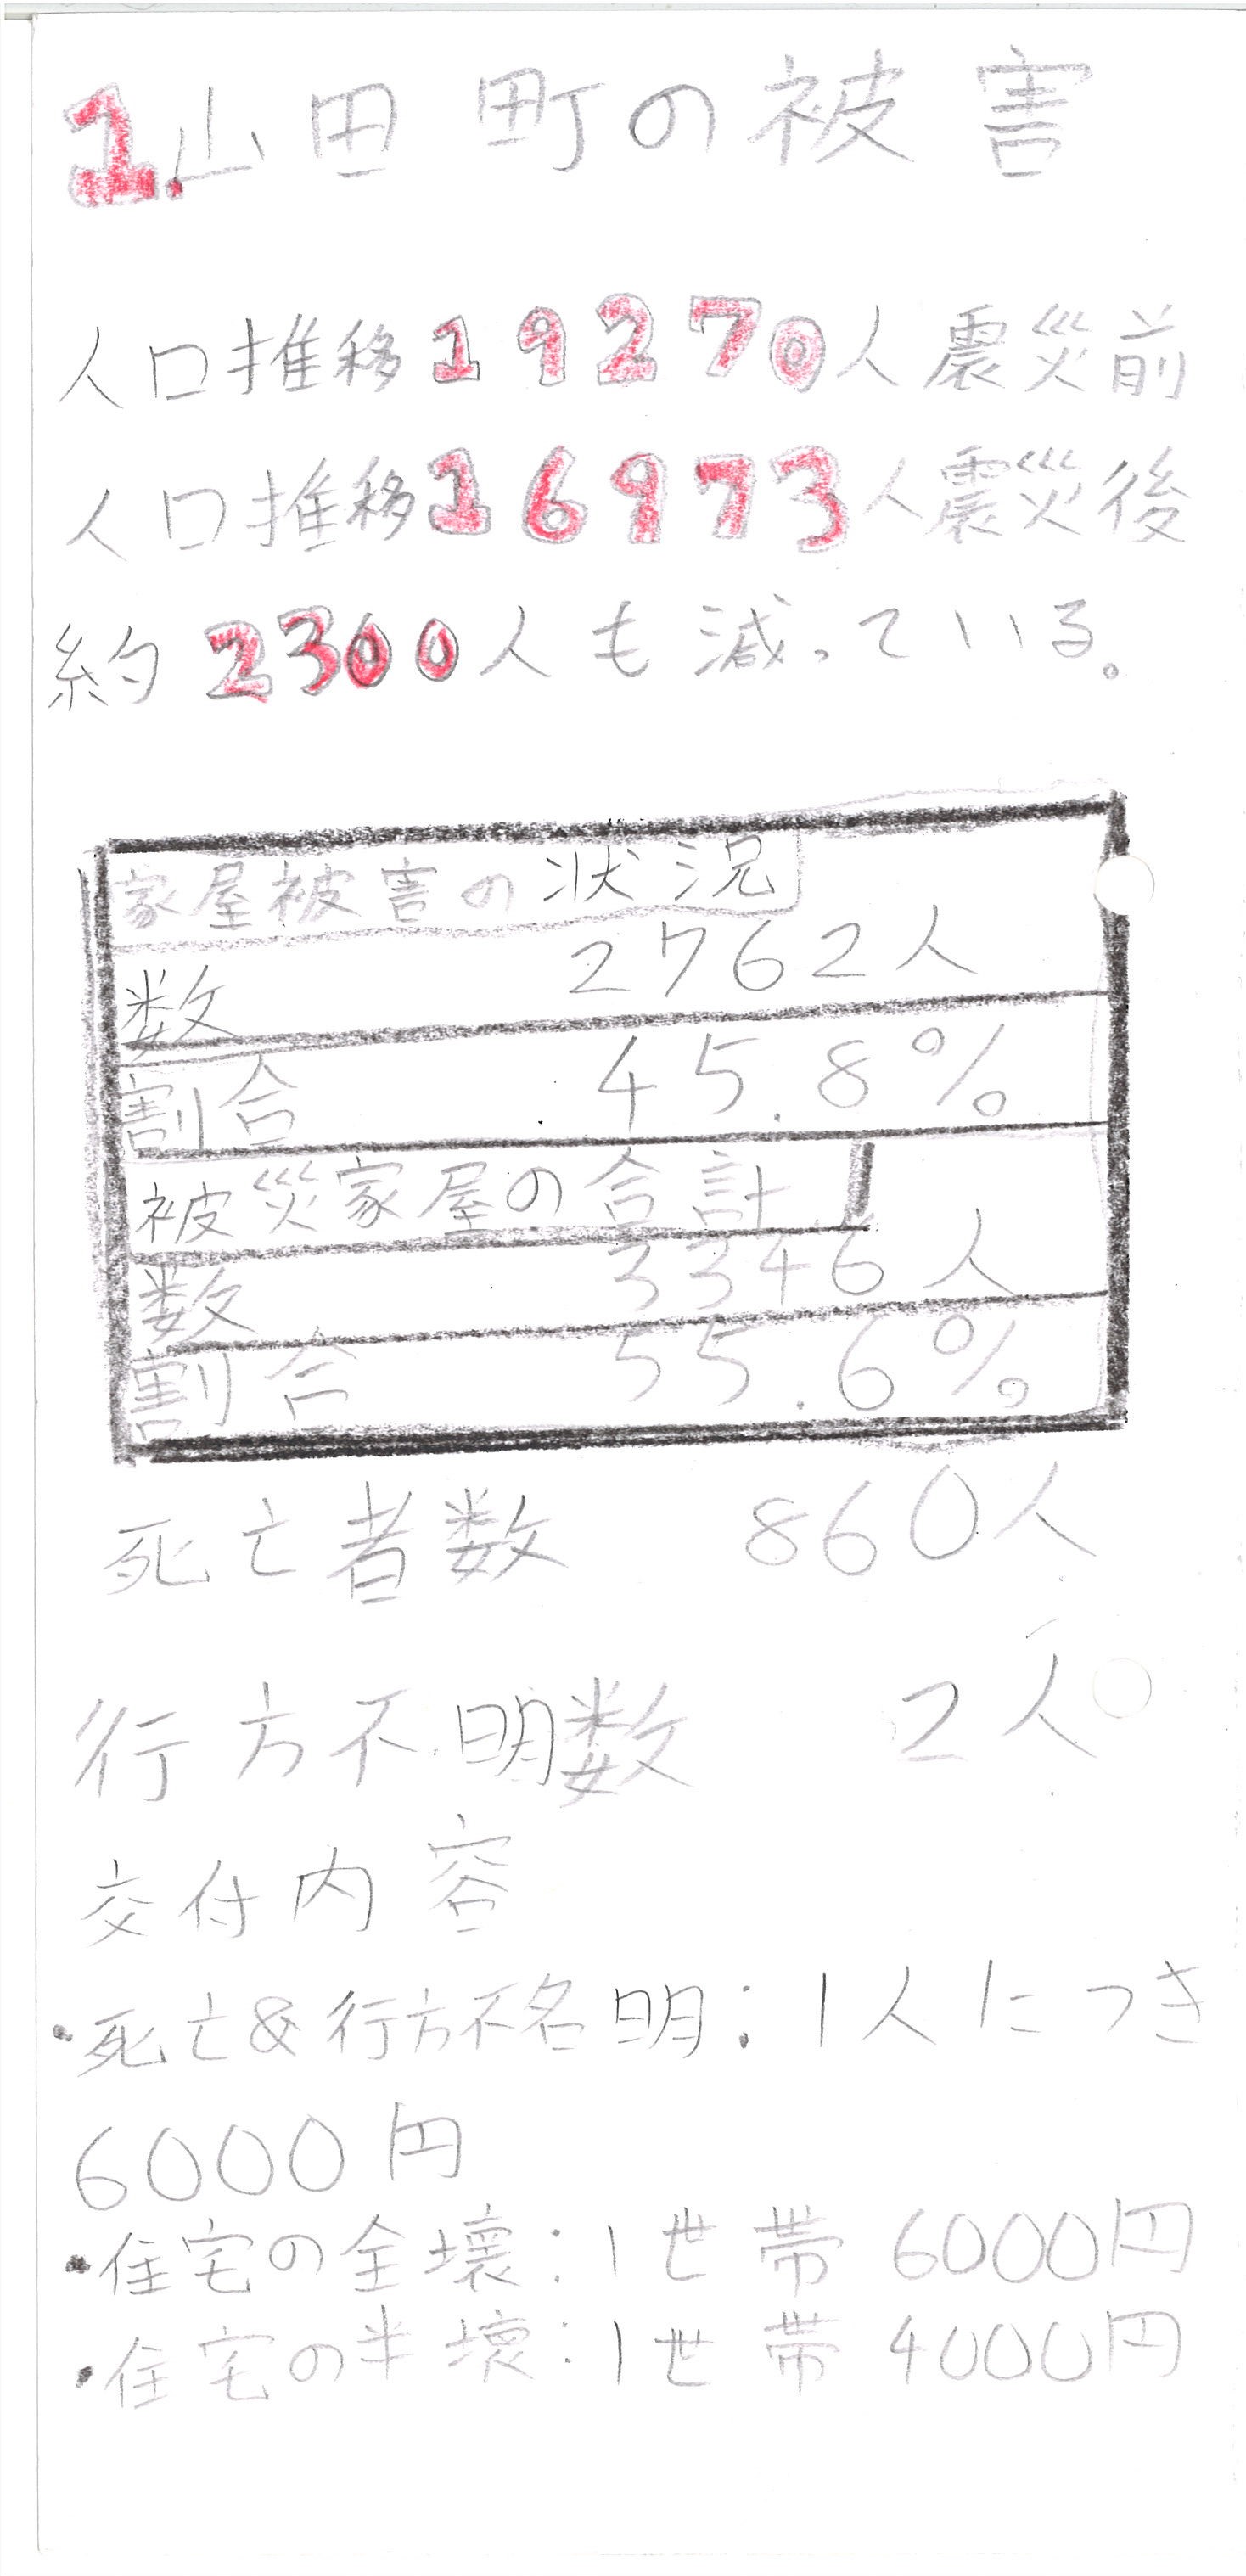 1.山田町の被害
人口推移19270人震災前
人口推移16973人震災後
約2300人も減っている。
家屋被害の状況
数 2762人
割合 45.8%
被災家屋の合計
数 3346人
割合 55.6%
死亡者数 860人
行方不明数 2人
交付内容
・死亡&行方不名明:1人につき
6000円
・住宅の全壊:1世帯6000円
・住宅の半壊:1世帯4000円